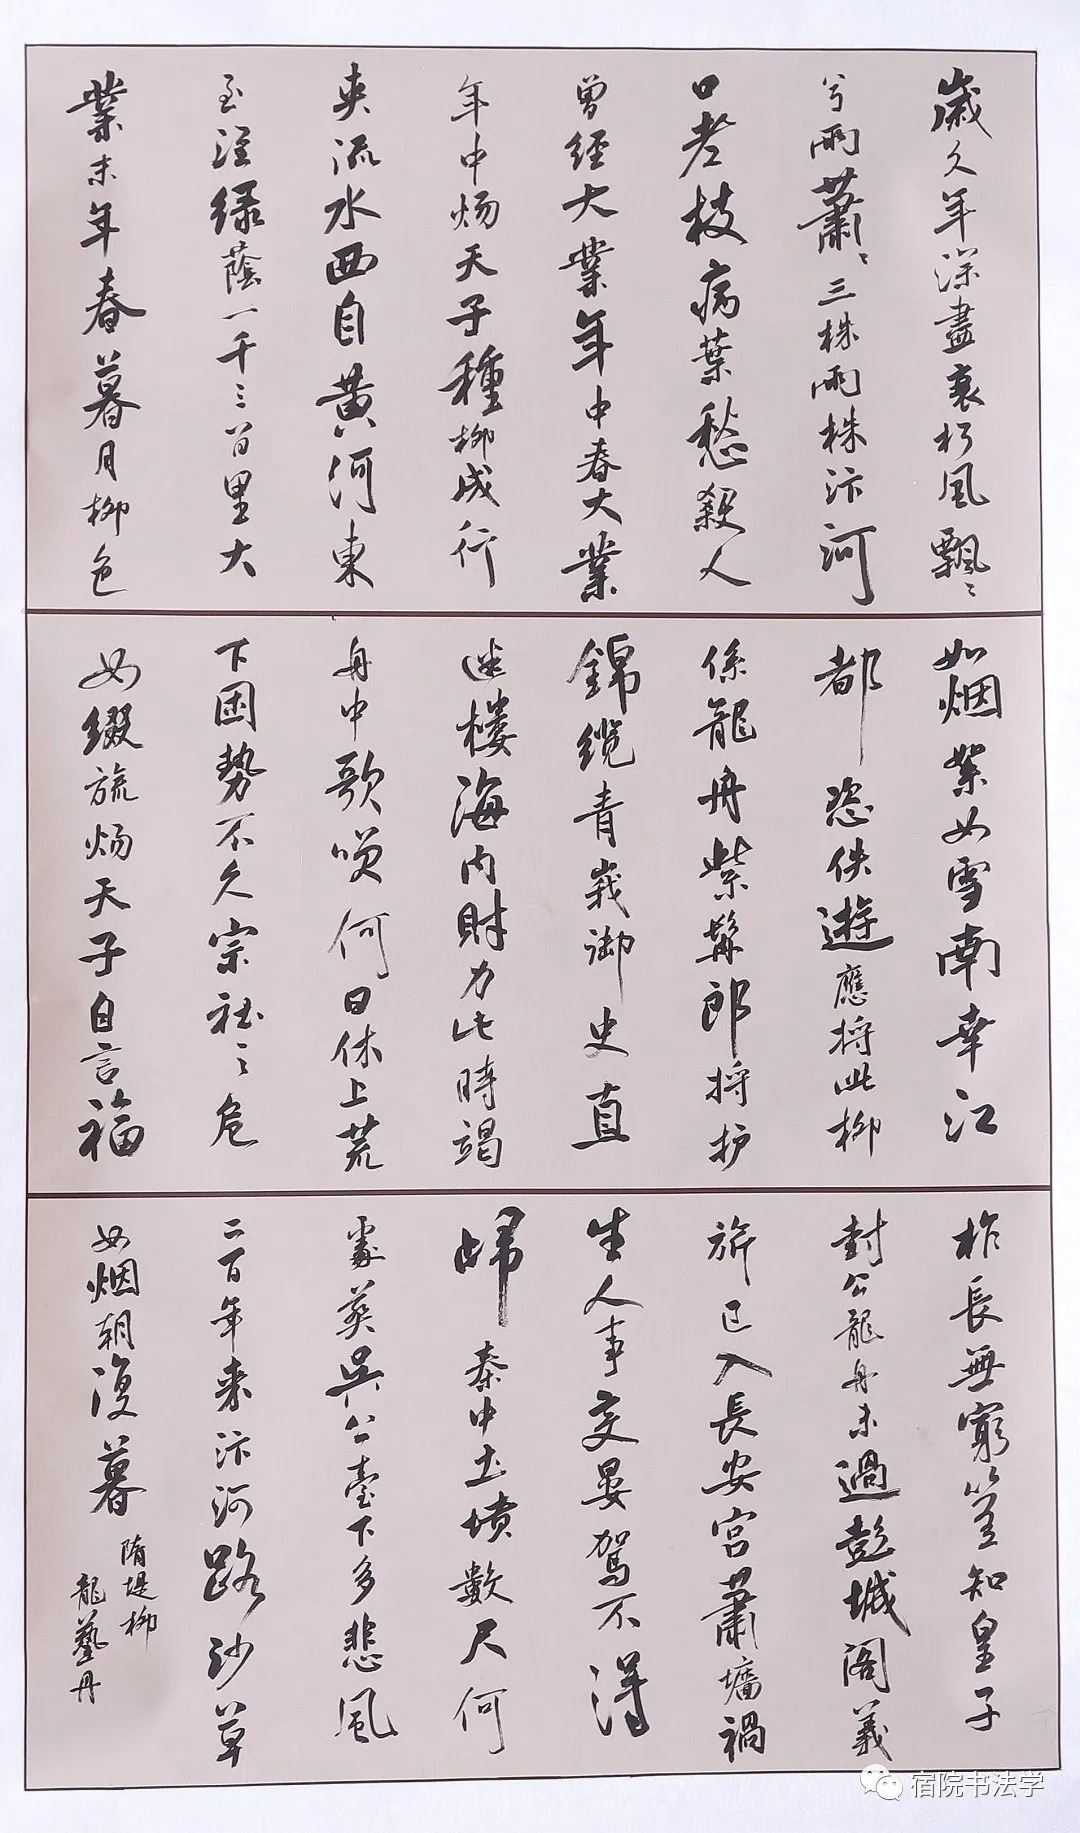 歲久年深盡衰朽風飄〻
兮雨蕭〻三株兩株汴河
口老枝病葉愁殺人
曾經大業年中春大業
年中煬天子種柳成行
夾流水西自黃河東
至淮绿蔭一千三百里大
業末年春暮月柳色
如烟絮如雪南幸江
都恣佚遊應將此柳
係龍舟紫髯郎將护
錦缆青娥御史直
迷楼海内財力此時竭
舟中歌笑何日休上荒
下困勢不久宗社之危
如缀旒煬天子自言福
祚長無窮豈知皇子
封公龍舟未過彭城阁義
旂已入長安宫蕭墻禍
生人事变晏駕不得
歸秦中土墳數尺何
處葬吳公臺下多悲風
二百年来汴河路沙草
如烟朝復暮
隋堤柳
龍藝丹
宿院书法学